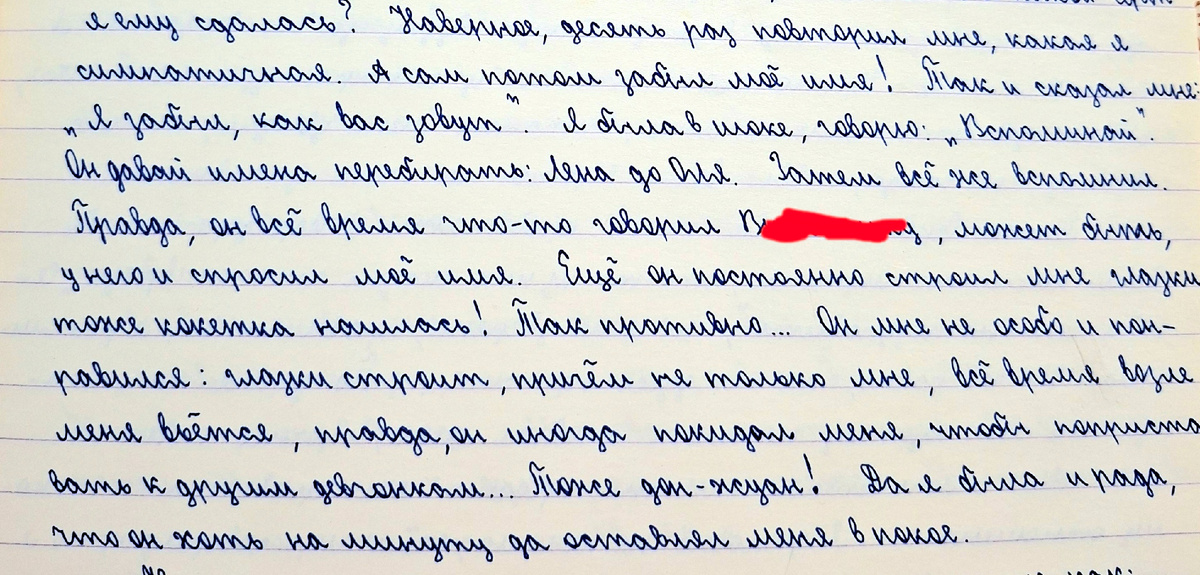 я ему сдалась? Наверное, десять раз повторил мне, какая я
симпатичная. А сам потом забыл моё имя! Так и сказал мне:
„Я забыл, как вас зовут". Я была в шоке, говорю: „Вспоминай".
Он давай имена перебирать: Лена до Оля. Затем всё же вспомнил.
Правда, он всё время что-то говорил В, может быть,
у него и спросил моё имя. Ещё он постоянно строил мне глазки
тоже кокетка нашлась! Так противно... Он мне не особо и пон-
равился: глазки строит, причём не только мне, всё время возле
меня вьётся, правда, он иногда покидал меня, чтобы поприста
вать к другим девчонкам... Тоже дон-жуан! Да я была и рада,
что он хоть на минуту да оставлял меня в покое.